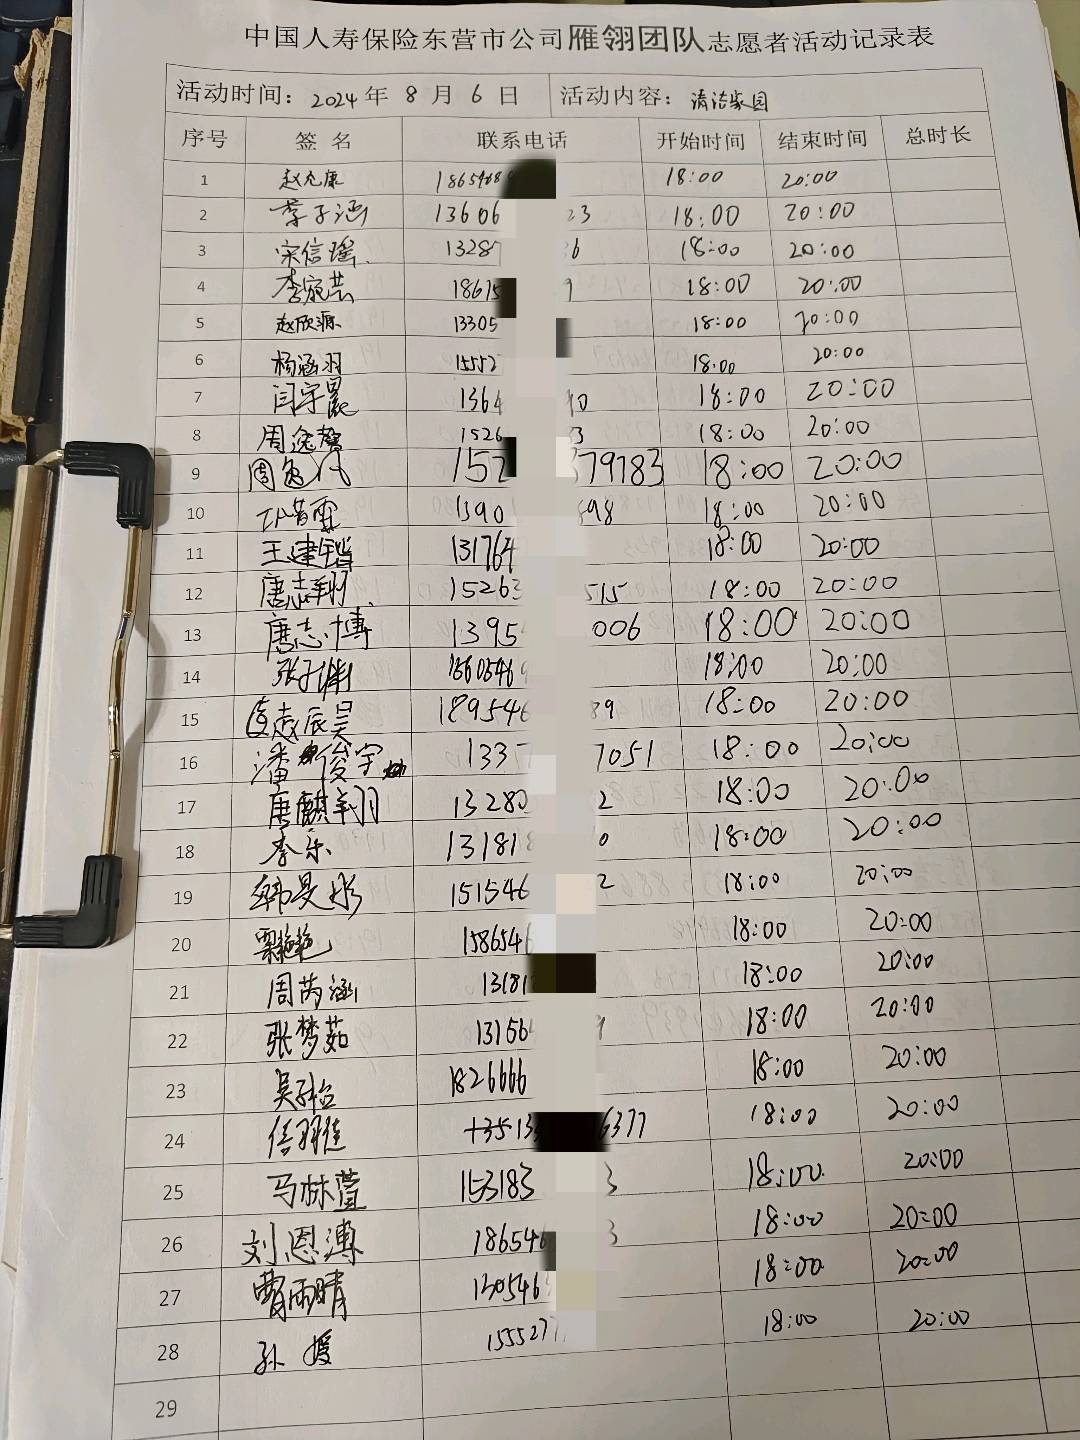 中国人寿保险东营市公司雁翎团队志愿者活动记录表
活动时间：2024年 8月 6日 活动内容：清洁家园
序号 签名 联系电话 开始时间 结束时间 总时长
1 1865468 18:00 20:00
2 李子涵 13606 23 18:00 20:00
3 宋信瑶 1328 36 18:00 20:00
4 18615 9 18:00 20:00
5 赵欣源 13305 18:00 20:00
6 杨涵羽 15552 18:00 20:00
7 闫宇晨 1364 40 18:00 20:00
8 周逸馨 1526 33 18:00 20:00
9 周逸 152 379783 18:00 20:00
10 1390 598 18:00 20:00
11 王建 131764 18:00 20:00
12 唐志翔 15263 515 18:00 20:00
13 唐志博 1395 006 18:00 20:00
14 1360546 18:00 20:00
15 189546 89 18:00 20:00
16 潘俊宇 133 7051 18:00 20:00
17 唐麒翔 13280 2 18:00 20:00
18 李乐 13181 0 18:00 20:00
19 韩昊彤 151546 2 18:00 20:00
20 158654 18:00 20:00
21 周芮涵 1318 18:00 20:00
22 张梦茹 13156 9 18:00 20:00
23 1826666 18:00 20:00
24 13513 6377 18:00 20:00
25 马林萱 153183 3 18:00 20:00
26 刘恩溥 186546 3 18:00 20:00
27 曹雨晴 130546 18:00 20:00
28 孙媛 155527 18:00 20:00
29